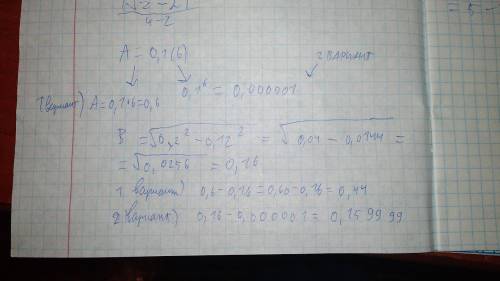 (√2 - 2)
4-2
= 5 -
A = 0,1(6)
2 вариант
1 вариант) A = 0,1*6=0,6
0,1⁶ = 0,000001
B = √0,2² - 0,12² = √0,04 - 0,0144 =
= √0,0256 = 0,16
1 вариант) 0,6-0,16=0,60-0,16=0,44
2 вариант) 0,16-0,000001=0,159999